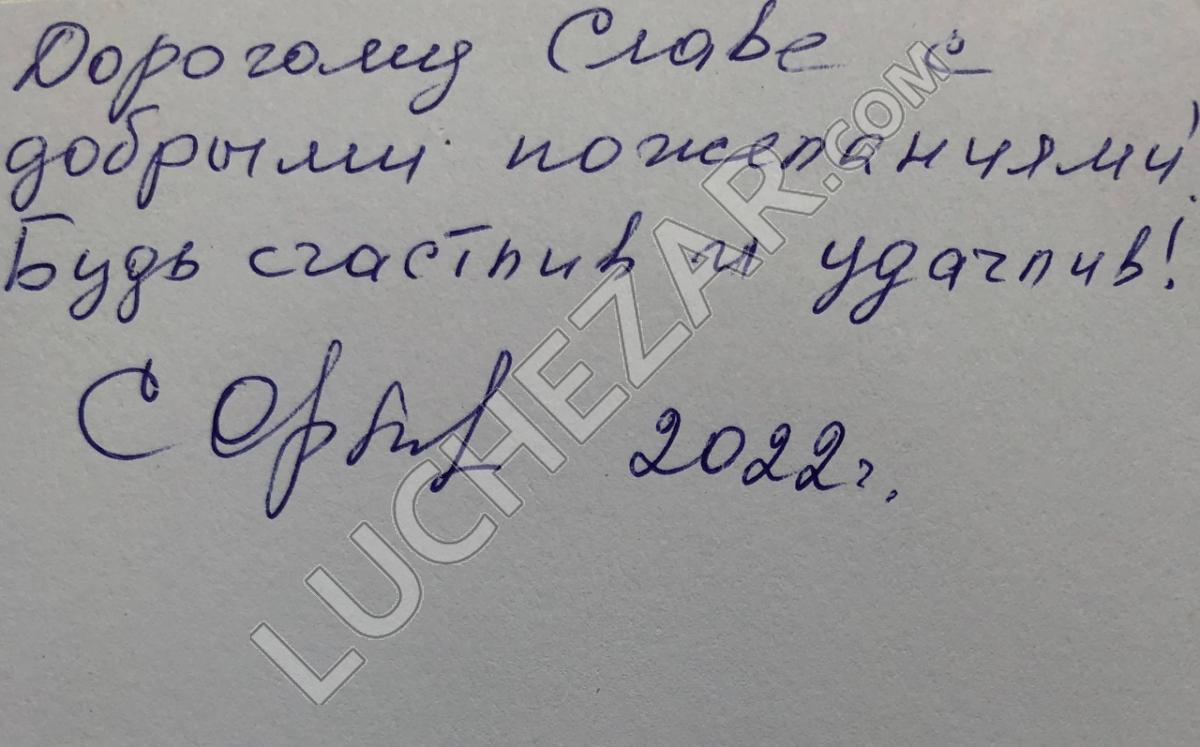 Дорогому Славе с
добрыми пожеланиями!
Будь счастлив и удачлив!
С 2022г.
LUCHEZAR.COM